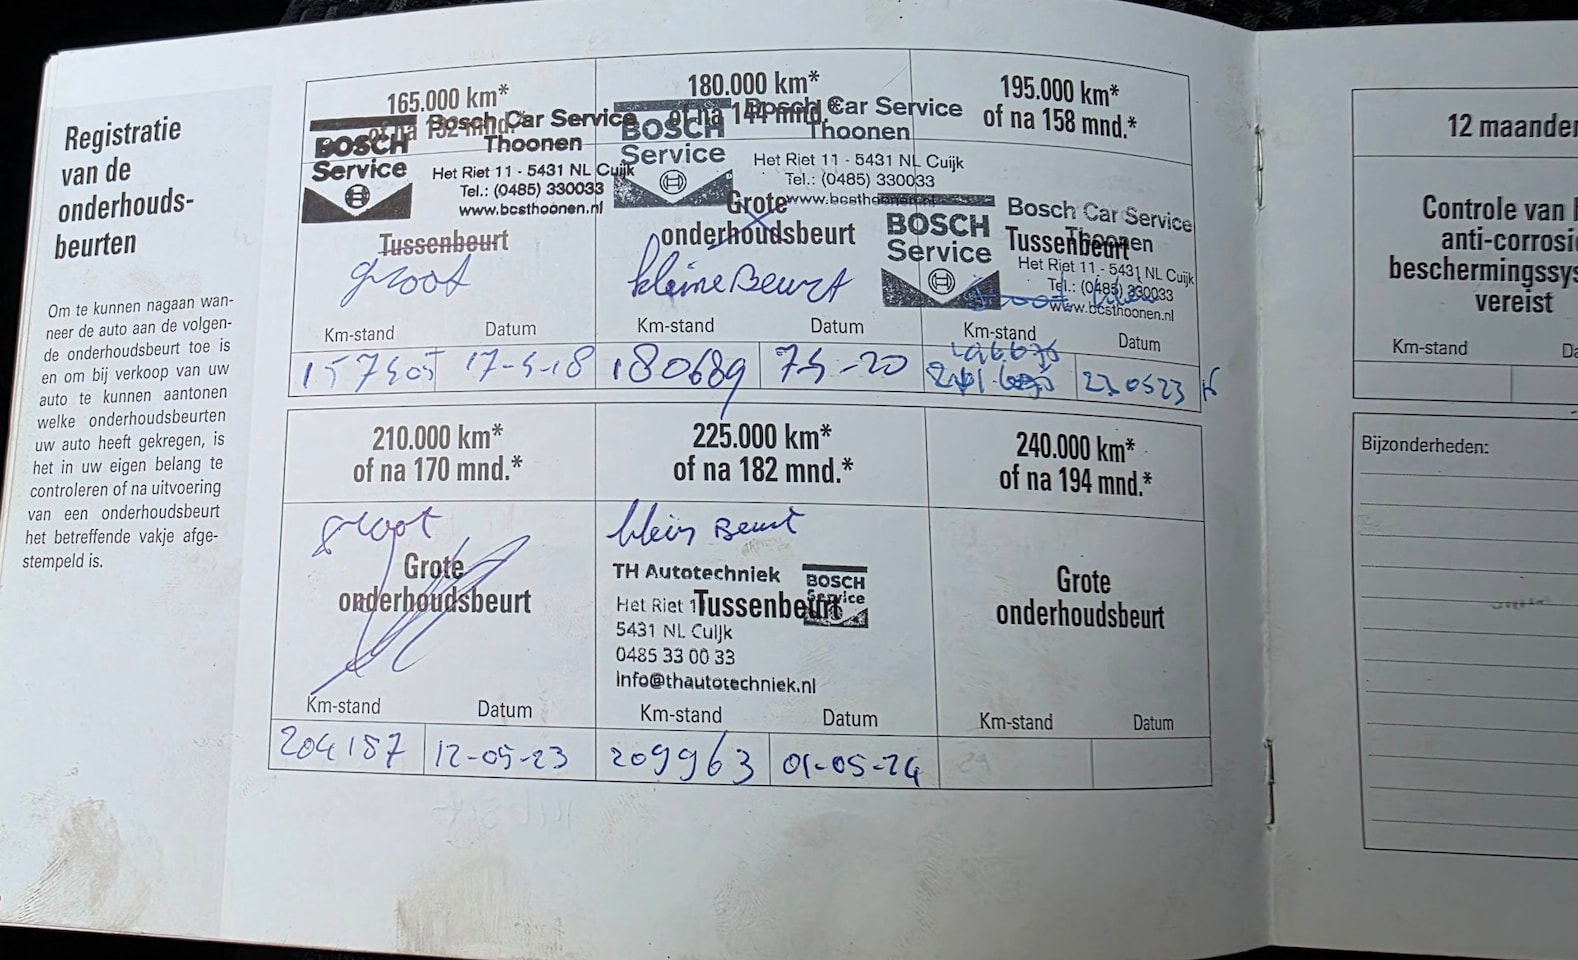 Registratie
van de
onderhouds-
beurten
Om te kunnen nagaan wan-
neer de auto aan de volgen-
de onderhoudsbeurt toe is
en om bij verkoop van uw
auto te kunnen aantonen
welke onderhoudsbeurten
uw auto heeft gekregen, is
het in uw eigen belang te
controleren of na uitvoering
van een onderhoudsbeurt
het betreffende vakje afge-
stempeld is.
165.000 km*
of na 132 mnd.*
Bosch Car Service
Thoonen
BOSCH
Service
Het Riet 11 - 5431 NL Cuijk
Tel.: (0485) 330033
www.bcsthoonen.nl
Tussenbeurt
groot
Km-stand Datum
17-5-18
180.000 km*
of na 144 mnd.*
Bosch Car Service
Thoonen
BOSCH
Service
Het Riet 11 - 5431 NL Cuijk
Tel.: (0485) 330033
www.bcsthoonen.nl
Grote
onderhoudsbeurt
kleine Beurt
Km-stand Datum
180689
195.000 km*
of na 158 mnd.*
BOSCH
Service
Bosch Car Service
Thoonen
Tussenbeurt
Het Riet 11 - 5431 NL Cuijk
Tel.: (0485) 330033
www.bcsthoonen.nl
Km-stand Datum
210.000 km*
of na 170 mnd.*
groot
Grote
onderhoudsbeurt
Km-stand Datum
204187 12-05-23
225.000 km*
of na 182 mnd.*
klein Beurt
TH Autotechniek
BOSCH
Service
Het Riet 1
Tussenbeurt
5431 NL Cuijk
0485 33 00 33
info@thautotechniek.nl
Km-stand Datum
209963 01-05-24
240.000 km*
of na 194 mnd.*
Grote
onderhoudsbeurt
Km-stand Datum
12 maanden
Controle van
anti-corrosie
beschermingssys
vereist
Km-stand Da
Bijzonderheden: